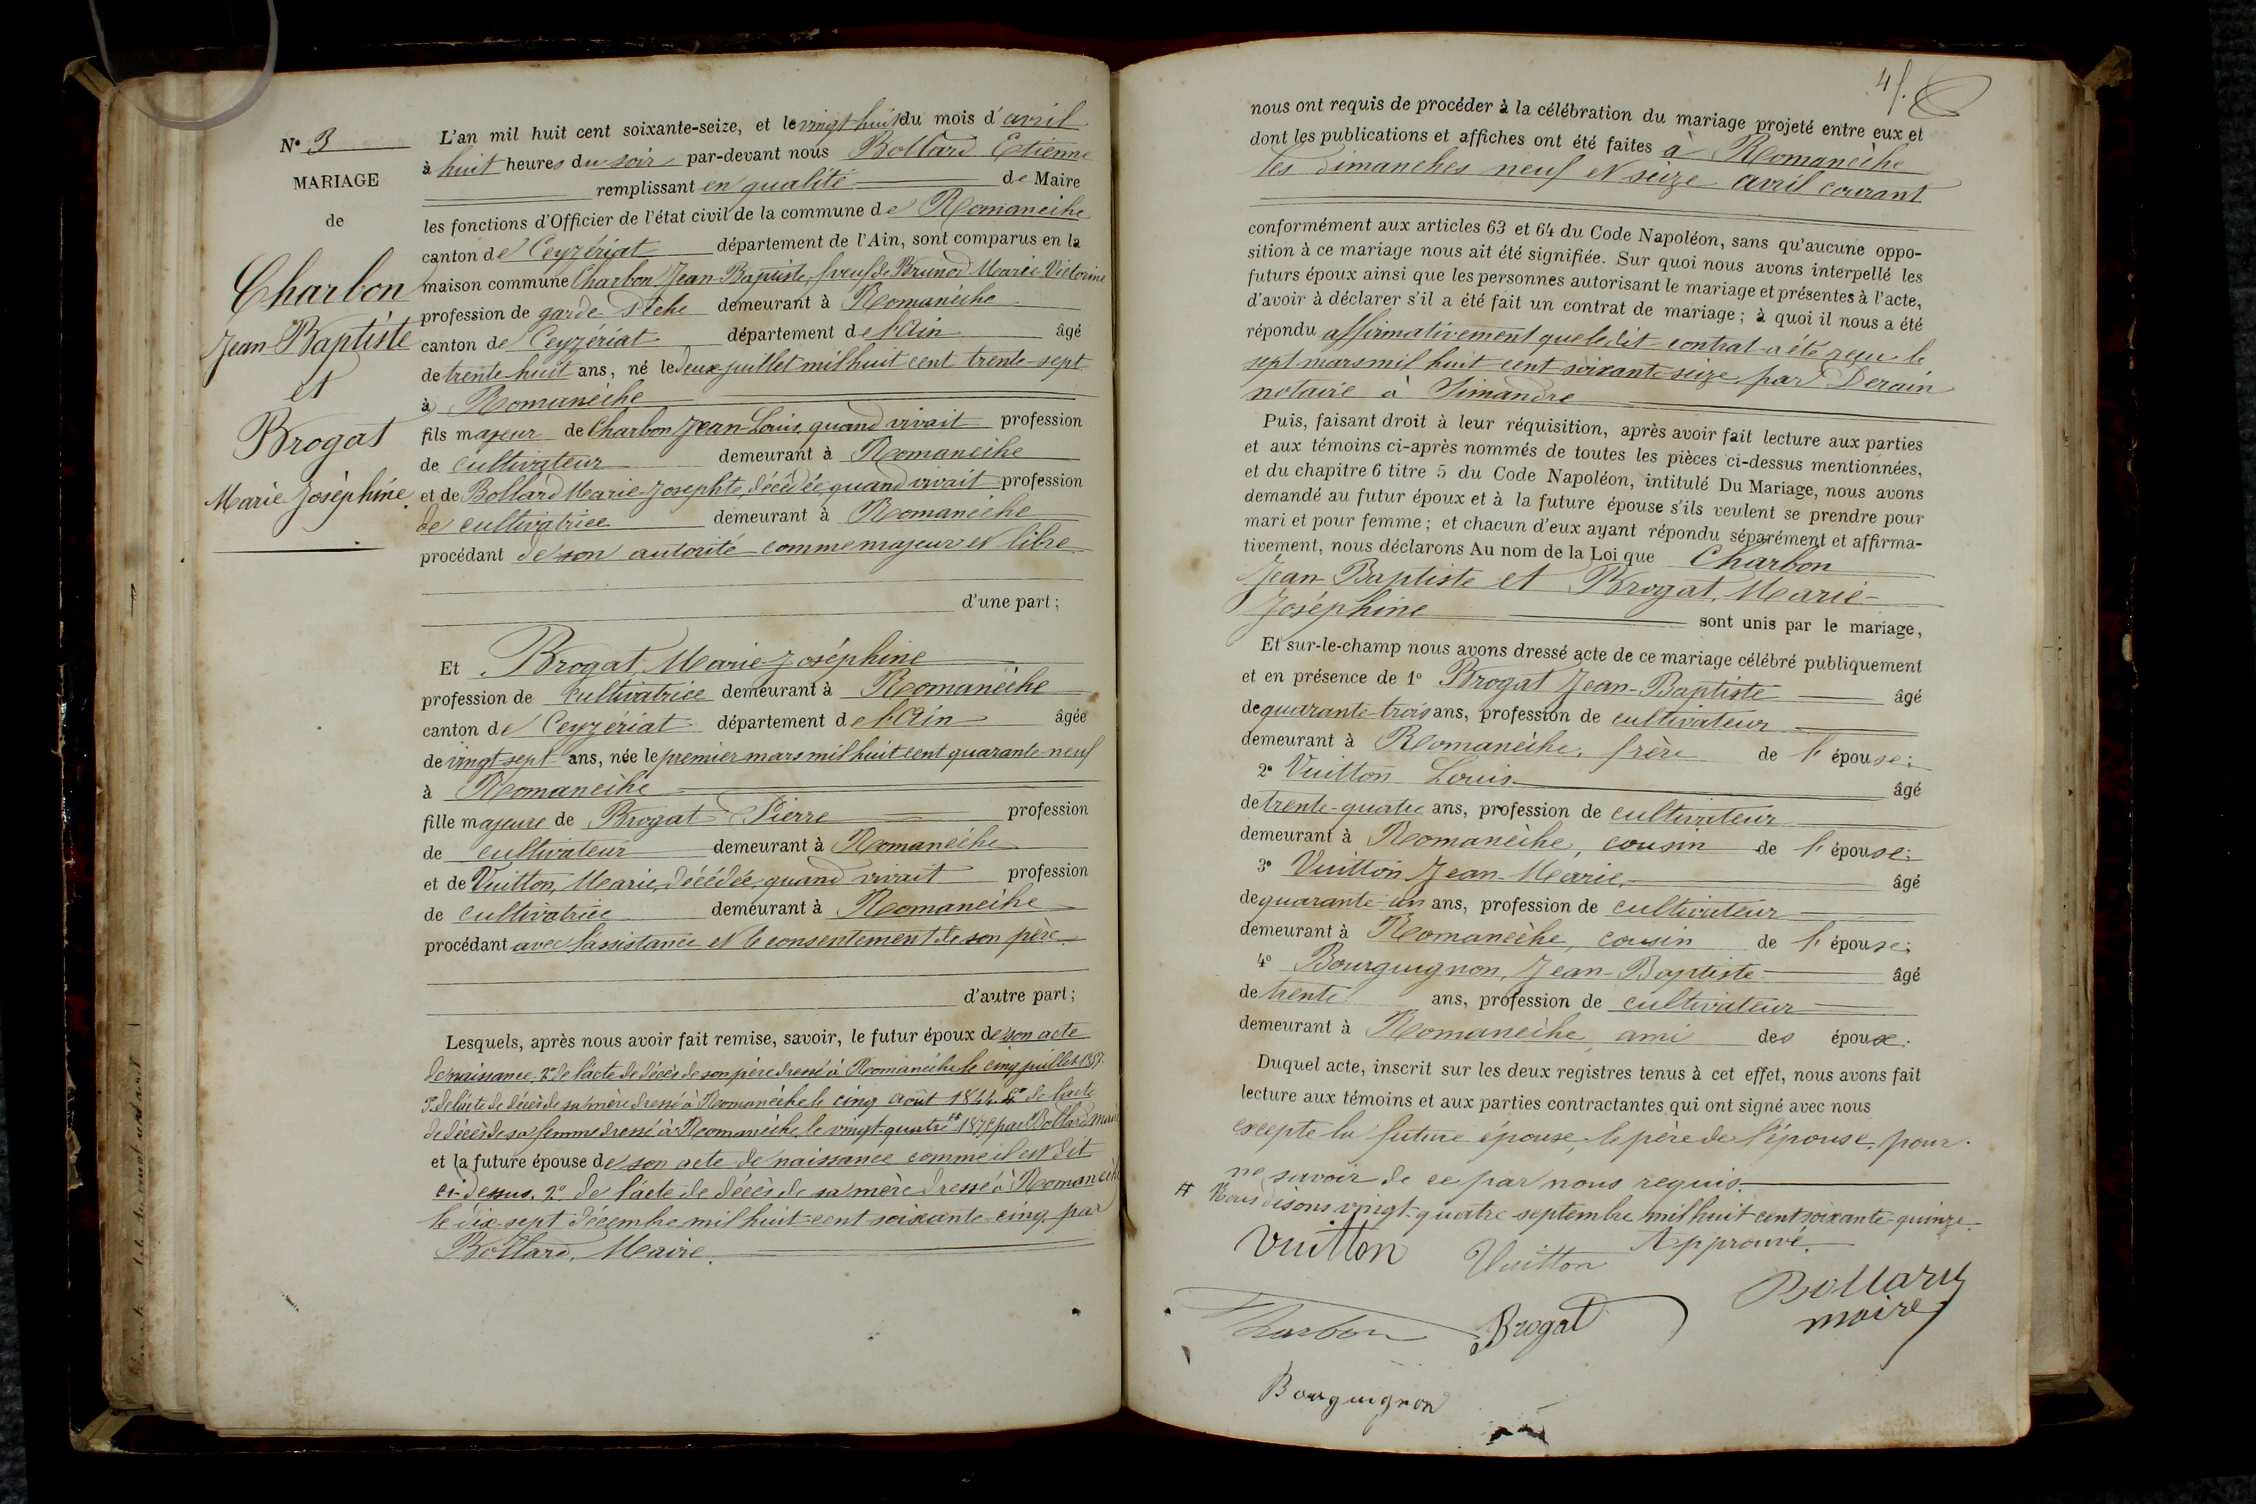 N° 3
MARIAGE
de
Charbon
Jean Baptiste
et
Brogat
Marie Joséphine.
L'an mil huit cent soixante-seize, et le vingt huit du mois d'avril
à huit heures du soir par-devant nous Bollard Etienne
remplissant en qualité de Maire
les fonctions d'Officier de l'état civil de la commune de Romanèche
canton de Ceyzériat département de l'Ain, sont comparus en la
maison commune Charbon Jean-Baptiste, veuf de Brunod Marie Victorine
profession de garde demeurant à Romanèche
canton de Ceyzériat département de l'Ain âgé
de trente-huit ans, né le deux juillet mil huit cent trente-sept
à Romanèche
fils majeur de Charbon Jean-Louis, quand vivait profession
de cultivateur demeurant à Romanèche
et de Bollard Marie-Josephte, décédée, quand vivait profession
de cultivatrice demeurant à Romanèche
procédant de son autorité comme majeur et libre
d'une part;
Et Brogat, Marie-Joséphine
profession de cultivatrice demeurant à Romanèche
canton de Ceyzériat département de l'Ain âgée
de vingt-sept ans, née le premier mars mil huit cent quarante-neuf
à Romanèche
fille majeure de Brogat Pierre profession
de cultivateur demeurant à Romanèche
et de Vuitton, Marie, décédée, quand vivait profession
de cultivatrice demeurant à Romanèche
procédant avec l'assistance et le consentement de son père
d'autre part;
Lesquels, après nous avoir fait remise, savoir, le futur époux de son acte
de naissance. 2° de l'acte de décès de son père dressé à Romanèche le cinq juillet
3° de l'acte de décès de sa mère dressé à Romanèche le cinq août 1844. 4° de l'acte
de décès de sa femme dressé à Romanèche, le vingt-quatre # 1875 par Bollard maire
et la future épouse de son acte de naissance comme il est dit
ci-dessus. 2° de l'acte de décès de sa mère dressé à Romanèche
le dix-sept décembre mil huit-cent soixante-cinq par
Bollard, Maire.
nous ont requis de procéder à la célébration du mariage projeté entre eux et
dont les publications et affiches ont été faites à Romanèche
les dimanches neuf et seize avril courant
conformément aux articles 63 et 64 du Code Napoléon, sans qu'aucune oppo-
sition à ce mariage nous ait été signifiée. Sur quoi nous avons interpellé les
futurs époux ainsi que les personnes autorisant le mariage et présentes à l'acte,
d'avoir à déclarer s'il a été fait un contrat de mariage; à quoi il nous a été
répondu affirmativement que le dit contrat a été reçu le
sept mars mil huit cent soixante seize par Derain
notaire à Simandre
Puis, faisant droit à leur réquisition, après avoir fait lecture aux parties
et aux témoins ci-après nommés de toutes les pièces ci-dessus mentionnées,
et du chapitre 6 titre 5 du Code Napoléon, intitulé Du Mariage, nous avons
demandé au futur époux et à la future épouse s'ils veulent se prendre pour
mari et pour femme; et chacun d'eux ayant répondu séparément et affirma-
tivement, nous déclarons Au nom de la Loi que Charbon
Jean-Baptiste et Brogat, Marie-
Joséphine sont unis par le mariage,
Et sur-le-champ nous avons dressé acte de ce mariage célébré publiquement
et en présence de 1° Brogat Jean-Baptiste âgé
de quarante-trois ans, profession de cultivateur
demeurant à Romanèche, frère de l'épouse;
2° Vuitton Louis âgé
de trente-quatre ans, profession de cultivateur
demeurant à Romanèche, cousin de l'épouse;
3° Vuitton Jean-Marie, âgé
de quarante-un ans, profession de cultivateur
demeurant à Romanèche, cousin de l'épouse;
4° Bourguignon, Jean-Baptiste âgé
de trente ans, profession de cultivateur
demeurant à Romanèche, ami des époux.
Duquel acte, inscrit sur les deux registres tenus à cet effet, nous avons fait
lecture aux témoins et aux parties contractantes qui ont signé avec nous
excepté la future épouse, le père de l'épouse, pour
ne savoir de ce par nous requis.
# Nous disons vingt-quatre septembre mil huit cent soixante-quinze.
Approuvé.
Vuitton Vuitton
Bollard
maire
Charbon Brogat
Bourguignon